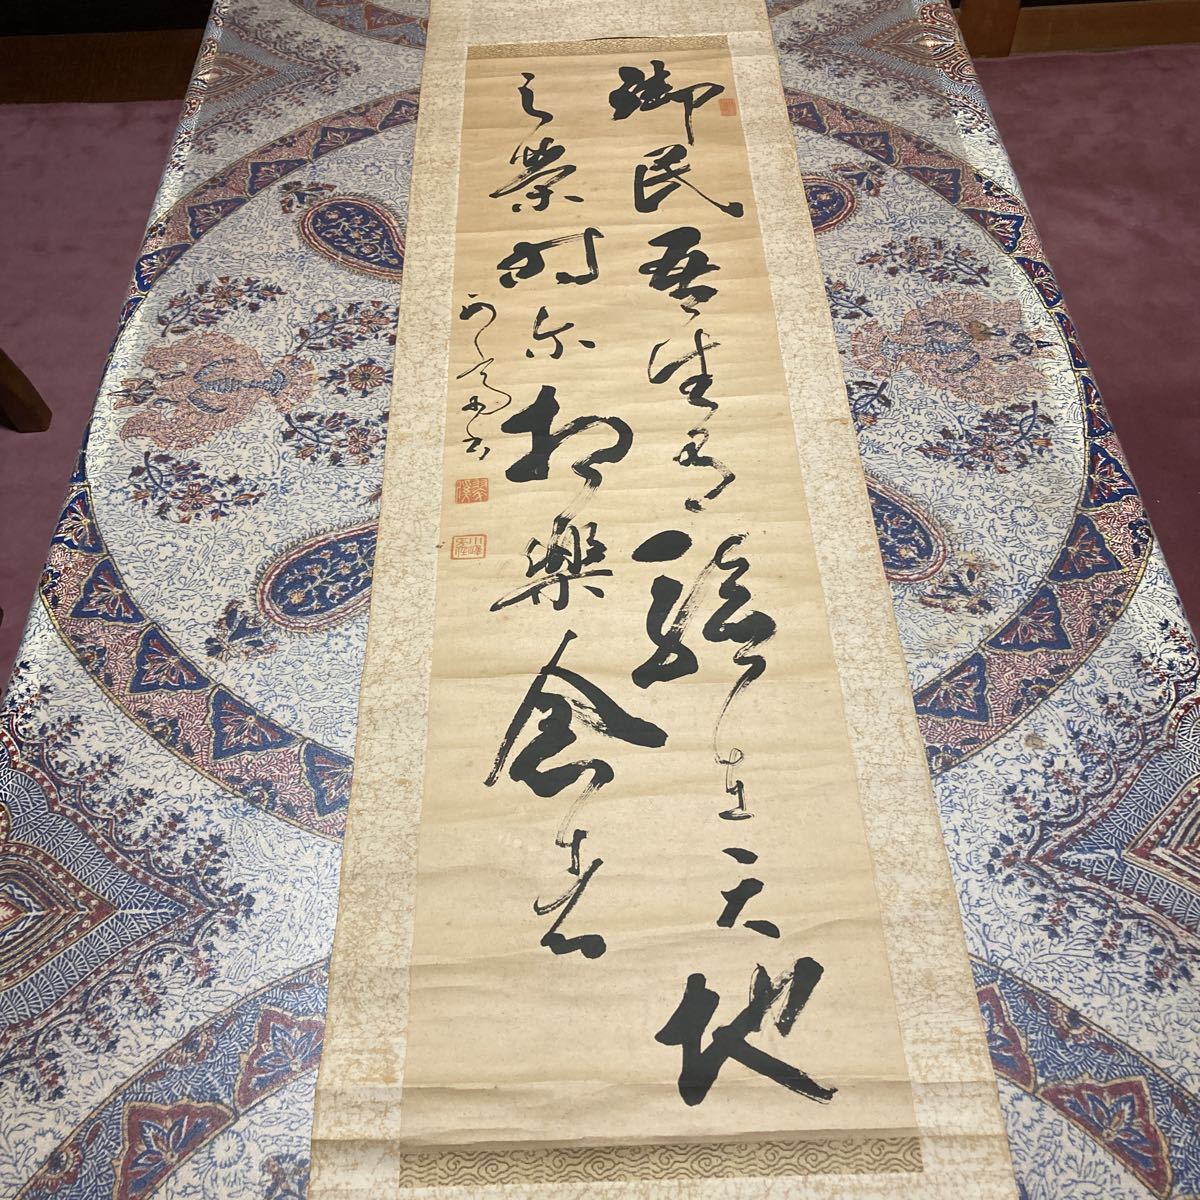 御民吾生有驗在天地
之榮時尓相樂念者